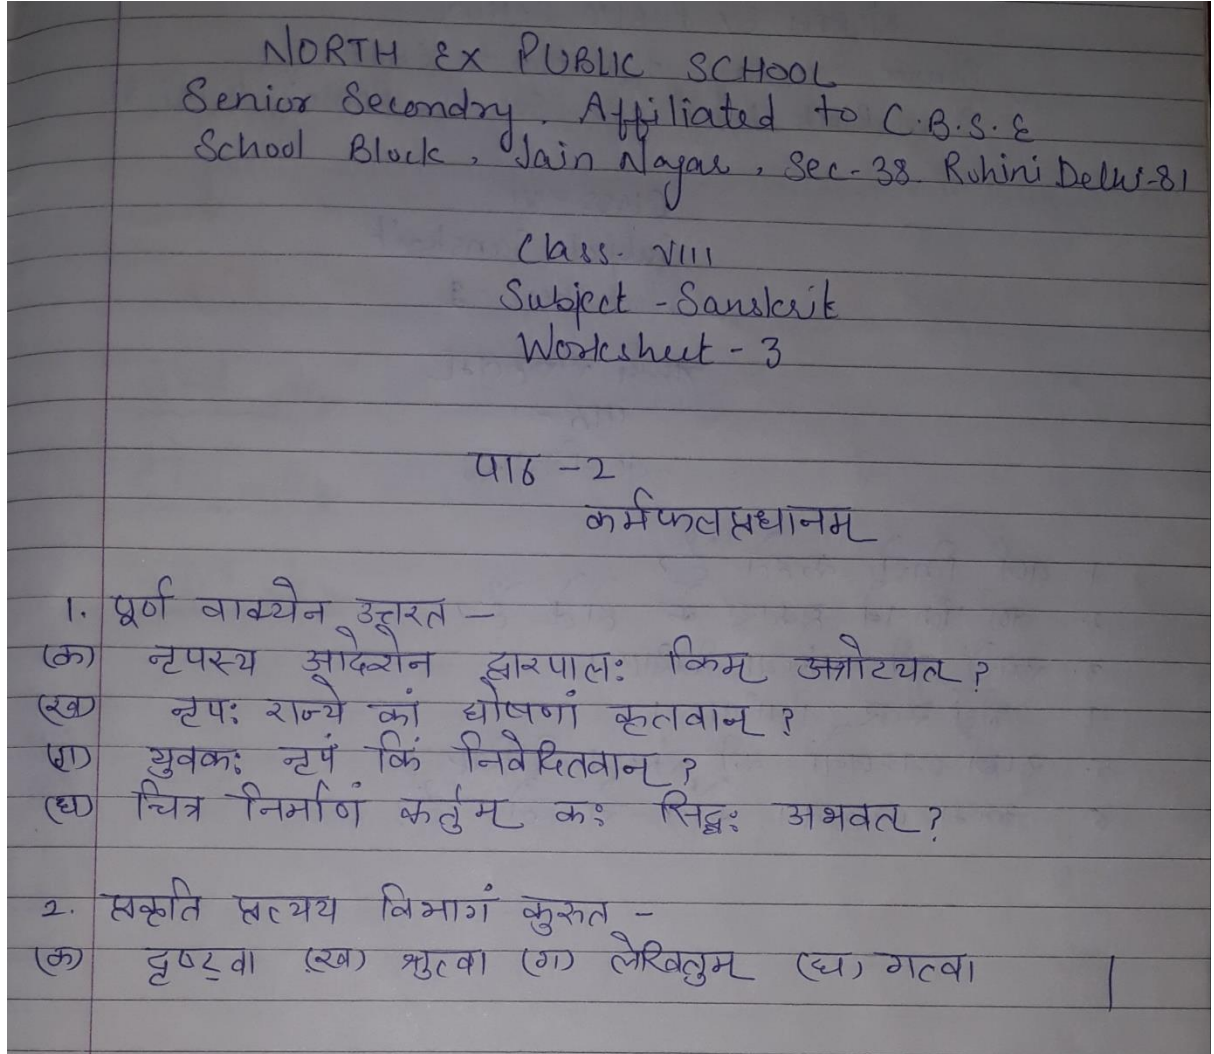 NORTH EX PUBLIC SCHOOL
Senior Secondry. Affiliated to C.B.S.E
School Block, Jain Nagar, Sec-38 Rohini Delhi-81
Class- VIII
Subject - Sanskrit
Worksheet - 3
पाठ -2
कर्मफलप्रधानम्
1. पूर्ण वाक्येन उत्तरत -
(क) नृपस्य आदेशेन द्वारपालः किम् अत्रोटयत् ?
(ख) नृपः राज्ये कां घोषणां कृतवान् ?
(ग) युवकः नृपं किं निवेदितवान् ?
(घ) चित्र निर्माणं कर्तुम् कः सिद्धः अभवत् ?
2. प्रकृति प्रत्यय विभागं कुरुत -
(क) दृष्ट्वा (ख) श्रुत्वा (ग) लेखितुम् (घ) गत्वा |